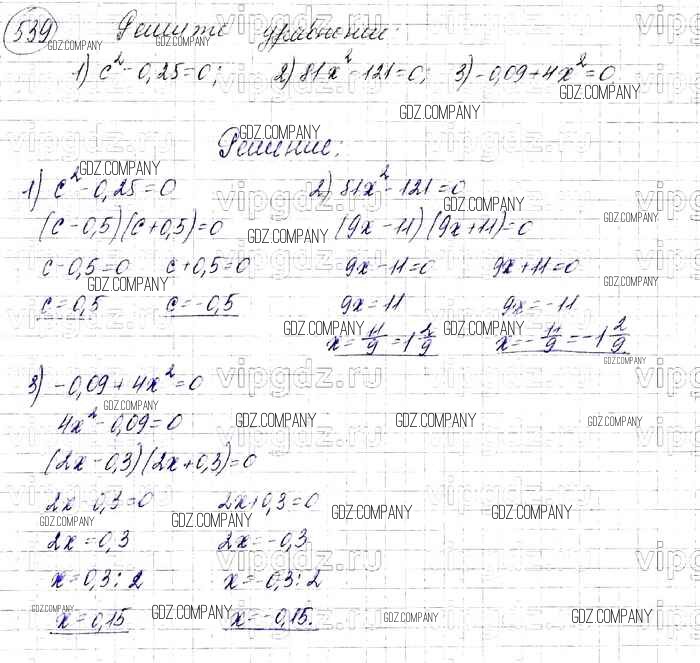 539 Решите уравнения:
1) c² - 0,25 = 0; 2) 81x² - 121 = 0; 3) -0,09 + 4x² = 0
Решение:
1) c² - 0,25 = 0 2) 81x² - 121 = 0
(c - 0,5)(c + 0,5) = 0 (9x - 11)(9x + 11) = 0
c - 0,5 = 0 c + 0,5 = 0 9x - 11 = 0 9x + 11 = 0
c = 0,5 c = -0,5 9x = 11 9x = -11
x = 11/9 = 1 2/9 x = -11/9 = -1 2/9
3) -0,09 + 4x² = 0
4x² - 0,09 = 0
(2x - 0,3)(2x + 0,3) = 0
2x - 0,3 = 0 2x + 0,3 = 0
2x = 0,3 2x = -0,3
x = 0,3 : 2 x = -0,3 : 2
x = 0,15 x = -0,15.
GDZ.COMPANY
vipgdz.ru